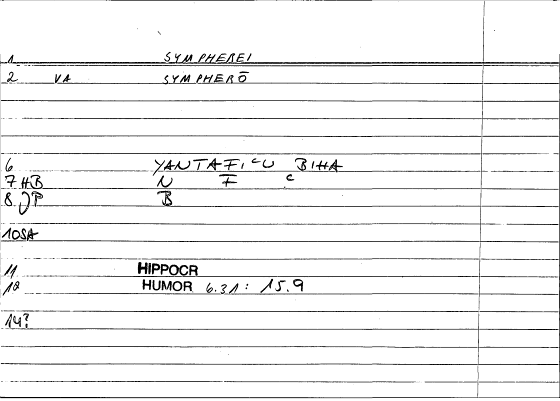 1 SYMPHEREI
2 VA SYMPHERŌ
6 YANTAFIcU BIHA
7 HB N F c
8 JP B
10SA
11 HIPPOCR
18 HUMOR 6.31: 15.9
14?